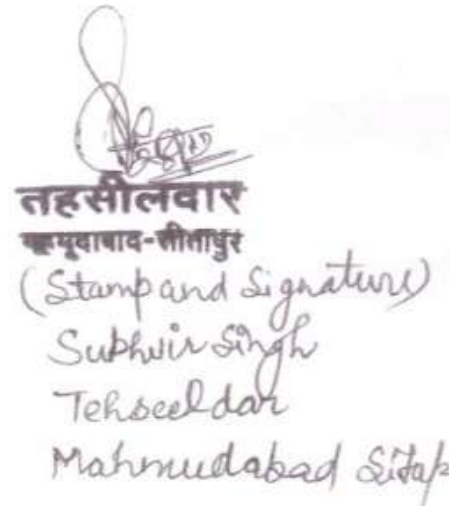 तहसीलदार
महमूदाबाद-सीतापुर
(Stamp and Signature)
Sukhvir Singh
Tehseeldar
Mahmudabad Sitap